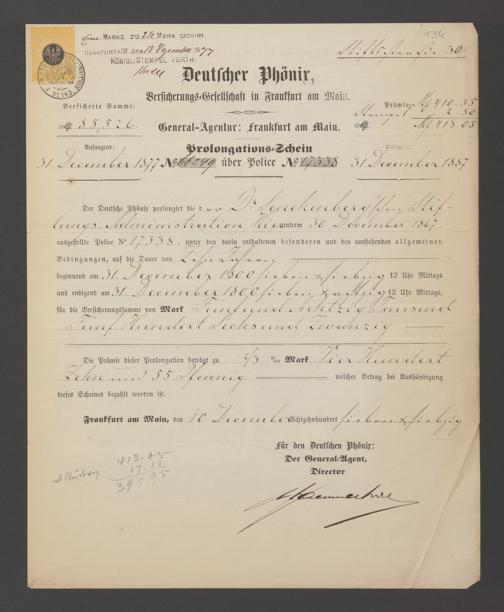 Eine Marke zu 2½ Mark cassirt
Frankfurt a/M. den 13 Dezember 1877
Königl. Stempel Verth.
Stiftstraße 30
Deutscher Phönix,
Versicherungs-Gesellschaft in Frankfurt am Main.
Versicherte Summe:
Prämie M 410-55
Stempel 2-50
M 85,526.
General-Agentur: Frankfurt am Main.
M 413.05
Prolongations-Schein
Anfangend:
31 December 1877 No über Police No 17338 31 December 1887
Der Deutsche Phönix prolongirt die Dr. Senckenbergschen Stif-
tungs Administration hier unterm 30 December 1867
ausgestellte Police No 17338, unter den darin enthaltenen besonderen und den umstehenden allgemeinen
Bedingungen, auf die Dauer von Zehn Jahren
beginnend am 31 December 1800 sieben & siebzig 12 Uhr Mittags
und endigend am 31 December 1800 sieben & achtzig 12 Uhr Mittags,
für die Versicherungssumme von Mark Fünf und Achtzig Tausend
Fünf Hundert Sechs und Zwanzig
Die Prämie dieser Prolongation beträgt zu Mark Vier Hundert
Zehn und 55 Pfennig welcher Betrag bei Aushändigung
dieses Scheines bezahlt worden ist.
Frankfurt am Main, den 10 December Achtzehnhundert sieben & siebzig
Für den Deutschen Phönix:
Der General-Agent,
Director
413.05
17.10
395.95